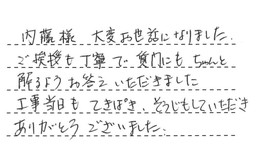 内藤様 大変お世話になりました.
ご挨拶も丁寧で、質問にもちゃんと
解るようお答えいただきました
工事当日も てきぱき、そうじもしていただき
ありがとう ございました.